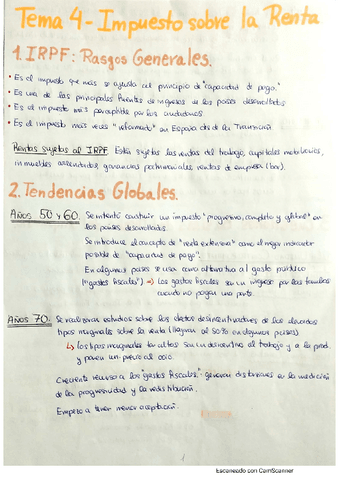 Tema 4 - Impuesto sobre la Renta
1. IRPF: Rasgos Generales.
• Es el impuesto que más se ajusta al principio de "capacidad de pago."
• Es una de las principales fuentes de ingresos de los países desarrollados
• Es el impuesto más perceptible por los ciudadanos
• Es el impuesto más veces "reformado" en España desde la Transición
Rentas sujetas al IRPF. Está sujetas las rentas del trabajo, capitales mobiliarios,
inmuebles arrendados, ganancias patrimoniales rentas de empresa (bar).
2. Tendencias Globales.
AÑOS 50 y 60. Se intentó construir un impuesto "progresivo, completo y global" en
los países desarrollados.
Se introduce el concepto de "renta extensiva" como el mejor indicador
posible de "capacidad de pago".
En algunos países se usa como alternativa al gasto público
("gastos fiscales") → Los gastos fiscales son un ingreso por las familias
cuando no pagan una parte.
AÑOS 70. Se realizaron estudios sobre los efectos desincentivadores de los elevados
tipos marginales sobre la renta (llegaron al 50% en algunos países)
↳ los tipos marginales tan altos son un desincentivo al trabajo y a la prod.
y ponen un precio al ocio.
Creciente recurso a los "gastos fiscales." generan distorsiones en la medición
de la progresividad y la redistribución.
Empezó a tener menor aceptación.
1
Escaneado con CamScanner